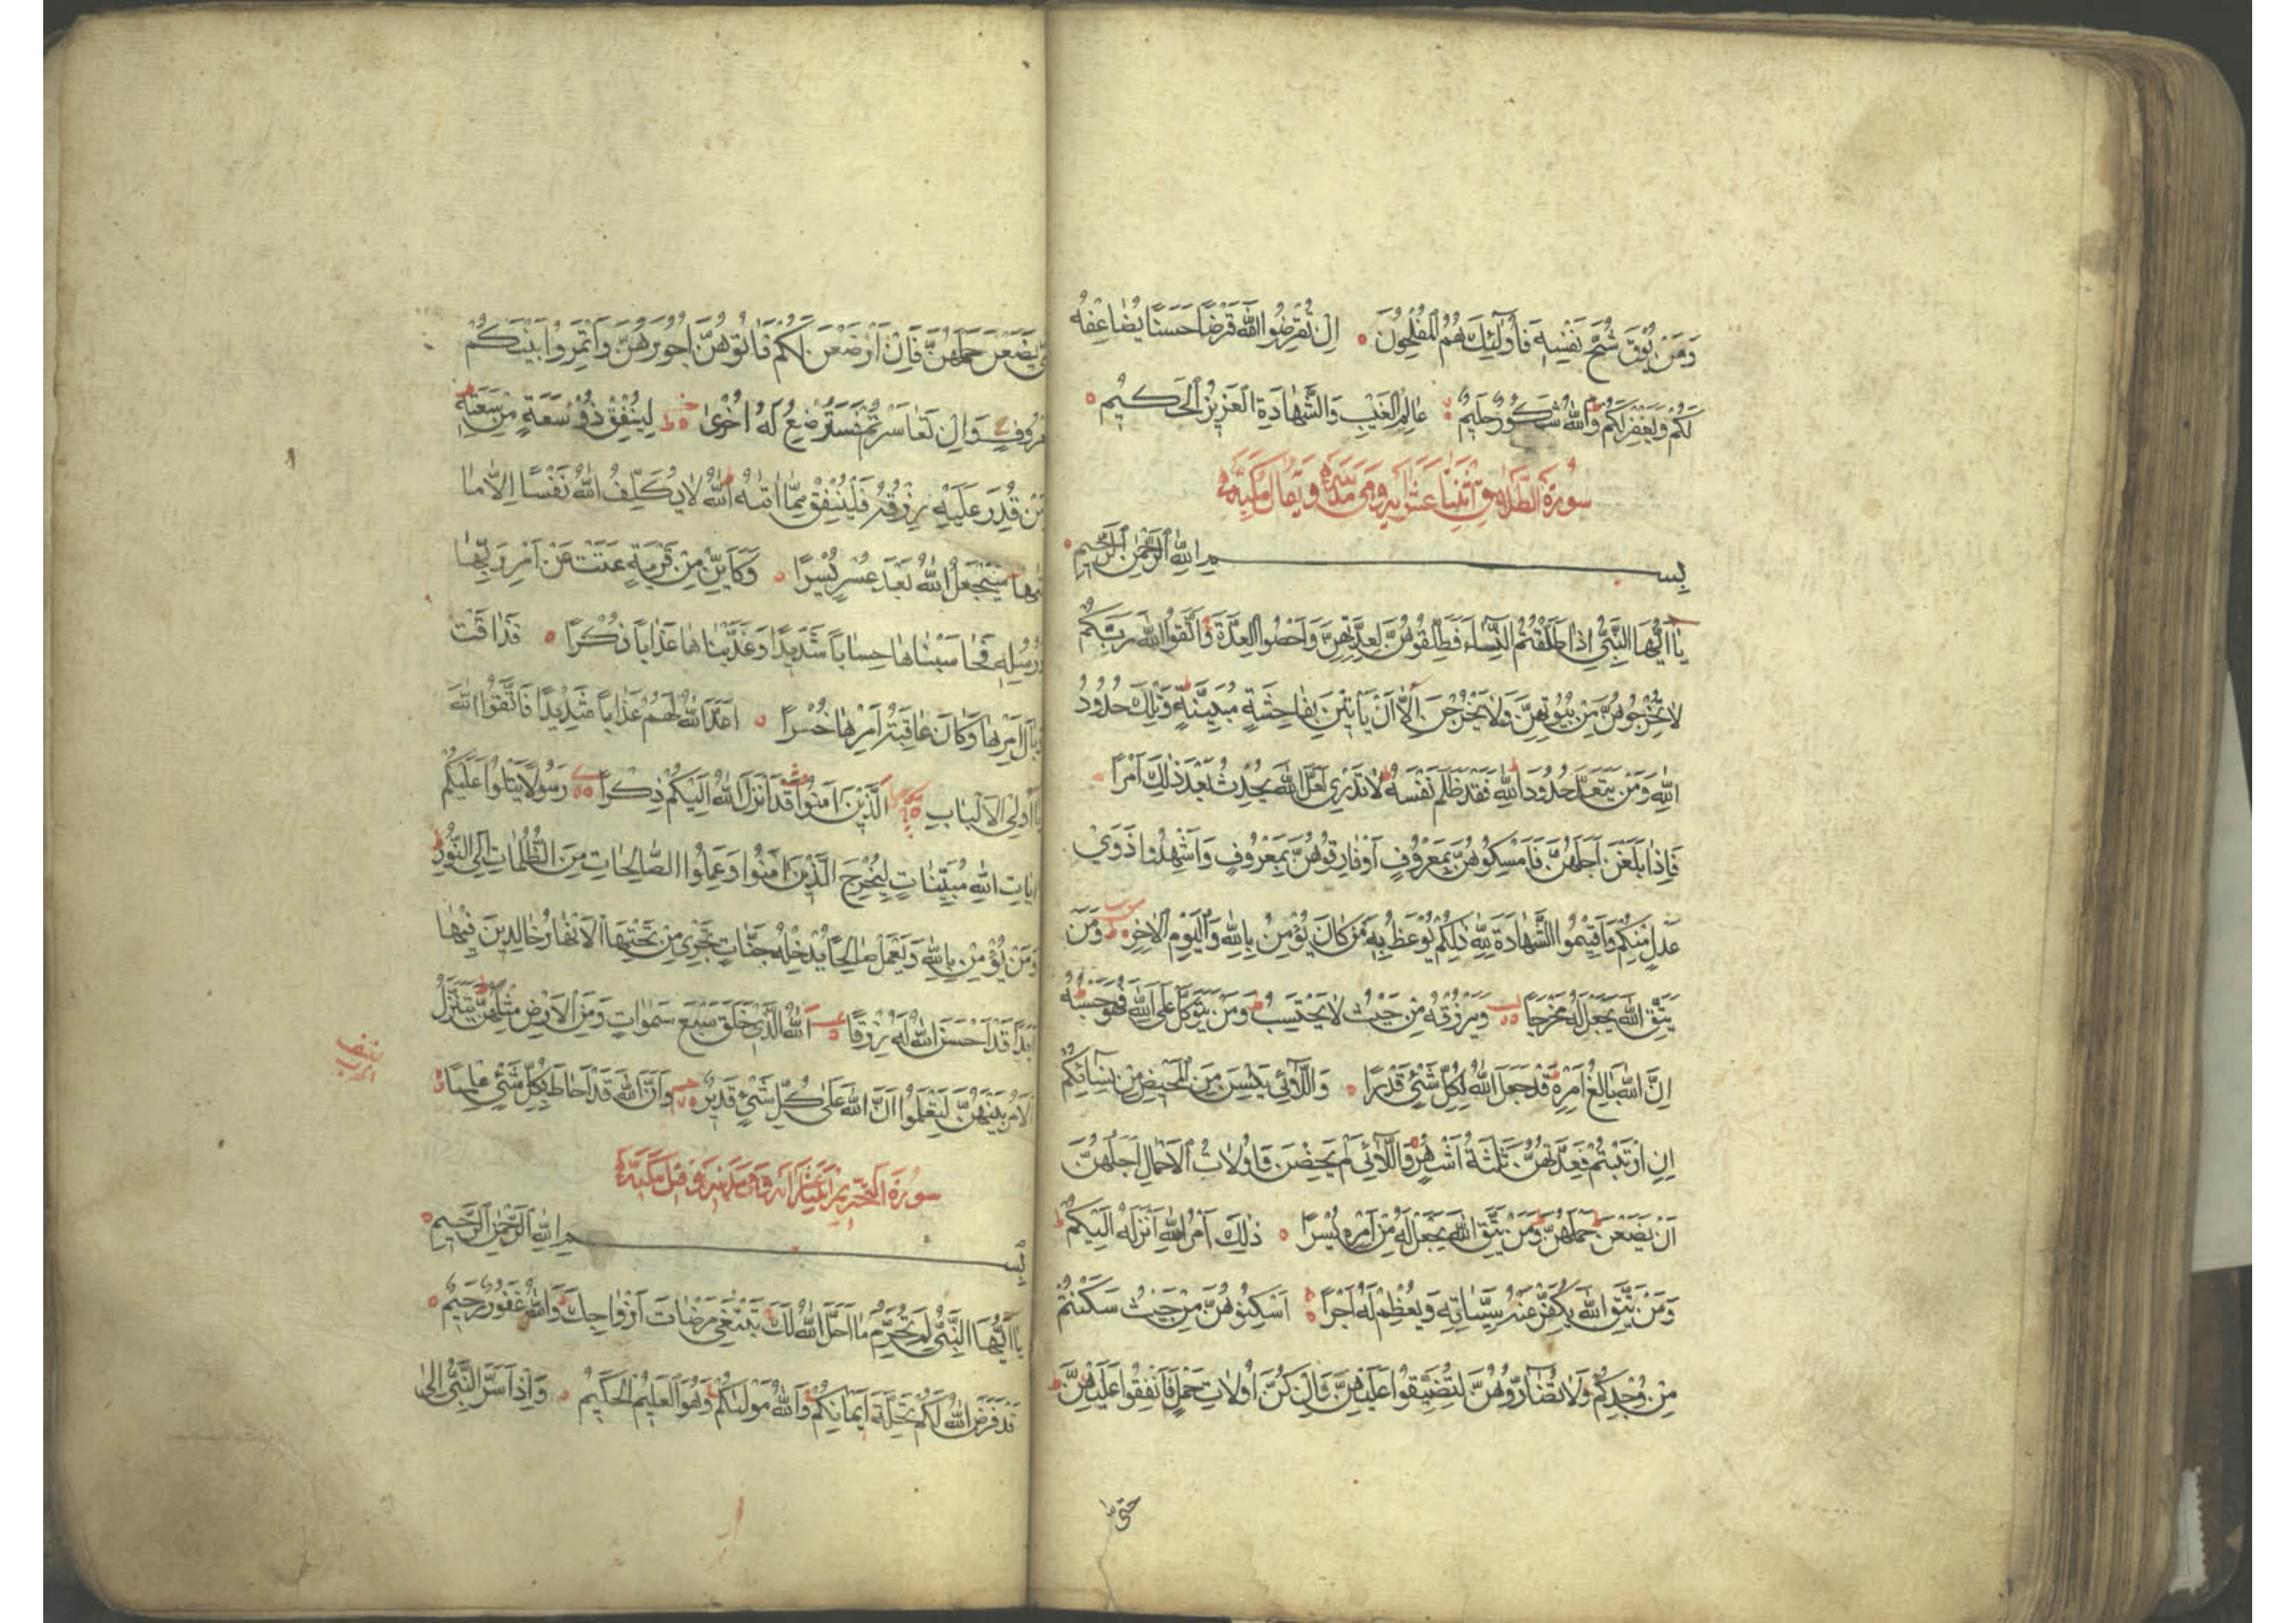 وَمَنْ يُوقَ شُحَّ نَفْسِهِ فَأُولٰئِكَ هُمُ الْمُفْلِحُونَ اِنْ تُقْرِضُوا اللّٰهَ قَرْضًا حَسَنًا يُضَاعِفْهُ
لَكُمْ وَيَغْفِرْلَكُمْ وَاللّٰهُ شَكُورٌ حَلِيمٌ عَالِمُ الْغَيْبِ وَالشَّهَادَةِ الْعَزِيزُ الْحَكِيمُ
سُورَةُ الطَّلَاقِ اثْنَتَا عَشَرَ آيَة وَهِيَ مَدَنِيَّة وَيُقَالُ مَكِّيَّة
بِسْمِ اللّٰهِ الرَّحْمٰنِ الرَّحِيمِ
يَا اَيُّهَا النَّبِيُّ اِذَا طَلَّقْتُمُ النِّسَاءَ فَطَلِّقُوهُنَّ لِعِدَّتِهِنَّ وَاَحْصُوا الْعِدَّةَ وَاتَّقُوا اللّٰهَ رَبَّكُمْ
لَا تُخْرِجُوهُنَّ مِنْ بُيُوتِهِنَّ وَلَا يَخْرُجْنَ اِلَّا اَنْ يَأْتِينَ بِفَاحِشَةٍ مُبَيِّنَةٍ وَتِلْكَ حُدُودُ
اللّٰهِ وَمَنْ يَتَعَدَّ حُدُودَ اللّٰهِ فَقَدْ ظَلَمَ نَفْسَهُ لَا تَدْرِي لَعَلَّ اللّٰهَ يُحْدِثُ بَعْدَ ذٰلِكَ اَمْرًا
فَاِذَا بَلَغْنَ اَجَلَهُنَّ فَاَمْسِكُوهُنَّ بِمَعْرُوفٍ اَوْ فَارِقُوهُنَّ بِمَعْرُوفٍ وَاَشْهِدُوا ذَوَيْ
عَدْلٍ مِنْكُمْ وَاَقِيمُوا الشَّهَادَةَ لِلّٰهِ ذٰلِكُمْ يُوعَظُ بِهِ مَنْ كَانَ يُؤْمِنُ بِاللّٰهِ وَالْيَوْمِ الْاٰخِرِ وَمَنْ
يَتَّقِ اللّٰهَ يَجْعَلْ لَهُ مَخْرَجًا وَيَرْزُقْهُ مِنْ حَيْثُ لَا يَحْتَسِبُ وَمَنْ يَتَوَكَّلْ عَلَى اللّٰهِ فَهُوَ حَسْبُهُ
اِنَّ اللّٰهَ بَالِغُ اَمْرِهِ قَدْ جَعَلَ اللّٰهُ لِكُلِّ شَيْءٍ قَدْرًا وَاللَّائِي يَئِسْنَ مِنَ الْمَحِيضِ مِنْ نِسَائِكُمْ
اِنِ ارْتَبْتُمْ فَعِدَّتُهُنَّ ثَلٰثَةُ اَشْهُرٍ وَاللَّائِي لَمْ يَحِضْنَ وَاُولَاتُ الْاَحْمَالِ اَجَلُهُنَّ
اَنْ يَضَعْنَ حَمْلَهُنَّ وَمَنْ يَتَّقِ اللّٰهَ يَجْعَلْ لَهُ مِنْ اَمْرِهِ يُسْرًا ذٰلِكَ اَمْرُ اللّٰهِ اَنْزَلَهُ اِلَيْكُمْ
وَمَنْ يَتَّقِ اللّٰهَ يُكَفِّرْ عَنْهُ سَيِّئَاتِهِ وَيُعْظِمْ لَهُ اَجْرًا اَسْكِنُوهُنَّ مِنْ حَيْثُ سَكَنْتُمْ
مِنْ وُجْدِكُمْ وَلَا تُضَارُّوهُنَّ لِتُضَيِّقُوا عَلَيْهِنَّ وَاِنْ كُنَّ اُولَاتِ حَمْلٍ فَاَنْفِقُوا عَلَيْهِنَّ
حَتّٰى
يَضَعْنَ حَمْلَهُنَّ فَاِنْ اَرْضَعْنَ لَكُمْ فَاٰتُوهُنَّ اُجُورَهُنَّ وَاْتَمِرُوا بَيْنَكُمْ
وَاِنْ تَعَاسَرْتُمْ فَسَتُرْضِعُ لَهُ اُخْرٰى لِيُنْفِقْ ذُو سَعَةٍ مِنْ سَعَتِهِ
قُدِرَ عَلَيْهِ رِزْقُهُ فَلْيُنْفِقْ مِمَّا اٰتٰيهُ اللّٰهُ لَا يُكَلِّفُ اللّٰهُ نَفْسًا اِلَّا مَا
سَيَجْعَلُ اللّٰهُ بَعْدَ عُسْرٍ يُسْرًا وَكَاَيِّنْ مِنْ قَرْيَةٍ عَتَتْ عَنْ اَمْرِ رَبِّهَا
وَرُسُلِهِ فَحَاسَبْنَاهَا حِسَابًا شَدِيدًا وَعَذَّبْنَاهَا عَذَابًا نُكْرًا فَذَاقَتْ
وَبَالَ اَمْرِهَا وَكَانَ عَاقِبَةُ اَمْرِهَا خُسْرًا اَعَدَّ اللّٰهُ لَهُمْ عَذَابًا شَدِيدًا فَاتَّقُوا اللّٰهَ
يَا اُولِي الْاَلْبَابِ الَّذِينَ اٰمَنُوا قَدْ اَنْزَلَ اللّٰهُ اِلَيْكُمْ ذِكْرًا رَسُولًا يَتْلُوا عَلَيْكُمْ
اٰيَاتِ اللّٰهِ مُبَيِّنَاتٍ لِيُخْرِجَ الَّذِينَ اٰمَنُوا وَعَمِلُوا الصَّالِحَاتِ مِنَ الظُّلُمَاتِ اِلَى النُّورِ
وَمَنْ يُؤْمِنْ بِاللّٰهِ وَيَعْمَلْ صَالِحًا يُدْخِلْهُ جَنَّاتٍ تَجْرِي مِنْ تَحْتِهَا الْاَنْهَارُ خَالِدِينَ فِيهَا
اَبَدًا قَدْ اَحْسَنَ اللّٰهُ لَهُ رِزْقًا اَللّٰهُ الَّذِي خَلَقَ سَبْعَ سَمٰوَاتٍ وَمِنَ الْاَرْضِ مِثْلَهُنَّ يَتَنَزَّلُ
الْاَمْرُ بَيْنَهُنَّ لِتَعْلَمُوا اَنَّ اللّٰهَ عَلٰى كُلِّ شَيْءٍ قَدِيرٌ وَاَنَّ اللّٰهَ قَدْ اَحَاطَ بِكُلِّ شَيْءٍ عِلْمًا
سُورَةُ التَّحْرِيمِ اثْنَتَا عَشَرَ آيَة وَهِيَ مَدَنِيَّة قِيلَ مَكِّيَّة
بِسْمِ اللّٰهِ الرَّحْمٰنِ الرَّحِيمِ
يَا اَيُّهَا النَّبِيُّ لِمَ تُحَرِّمُ مَا اَحَلَّ اللّٰهُ لَكَ تَبْتَغِي مَرْضَاتَ اَزْوَاجِكَ وَاللّٰهُ غَفُورٌ رَحِيمٌ
قَدْ فَرَضَ اللّٰهُ لَكُمْ تَحِلَّةَ اَيْمَانِكُمْ وَاللّٰهُ مَوْلٰيكُمْ وَهُوَ الْعَلِيمُ الْحَكِيمُ وَاِذْ اَسَرَّ النَّبِيُّ اِلٰى